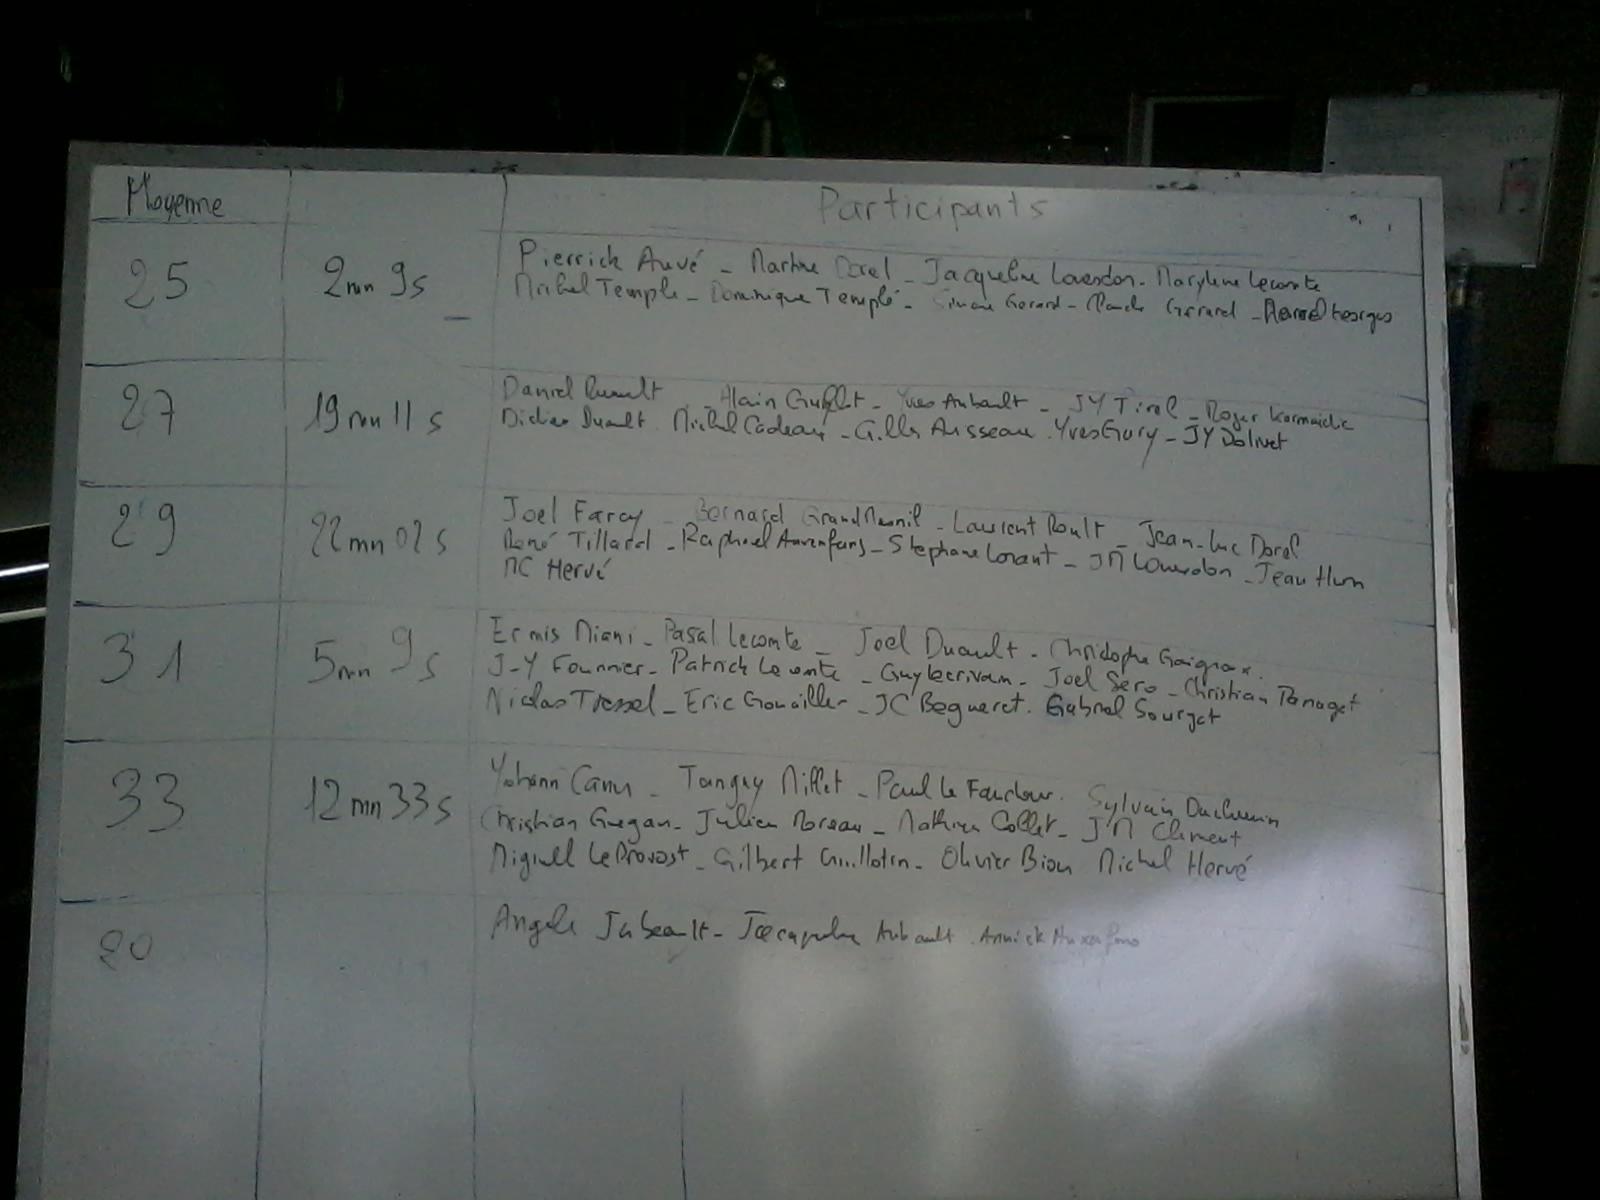 Moyenne Participants
25 2mn 9s Pierrick Auvé - Martine Dorel - Jacqueline Louesdon - Maryline Lecomte
Michel Temple - Dominique Templé - Simone Gerard - Gerard - Georges
27 19mn 11s Daniel Ruault - Alain - Yves Aubault - JY Tirel - Roger
Didier Duault - Michel Cadeau - Gilles Ausseau - Yves Gury - JY Dolivet
29 22mn 02s Joel Farcy - Bernard GrandMesnil - Laurent Roult - Jean-Luc Dorel
René Tillard - Raphael - Stephane Lorant - JM Louesdon - Jean
MC Hervé
31 5mn 9s Ermis Miani - Pasal Lecomte - Joel Duault - Christophe
J-Y Fournier - Patrick Lecomte - Guy Lecrivain - Joel Sero - Christian
Nicolas Tressel - Eric - JC Begueret - Gabriel Sourget
33 12mn 33s Yohann - Tanguy Millet - Paul Le - Sylvain
Christian Guegan - Julien Moreau - Mathieu Collet - JM Clement
Miguell LeProvost - Gilbert Guillotin - Olivier Bion Michel Hervé
20 Angele - Jacqueline Aubault - Annick